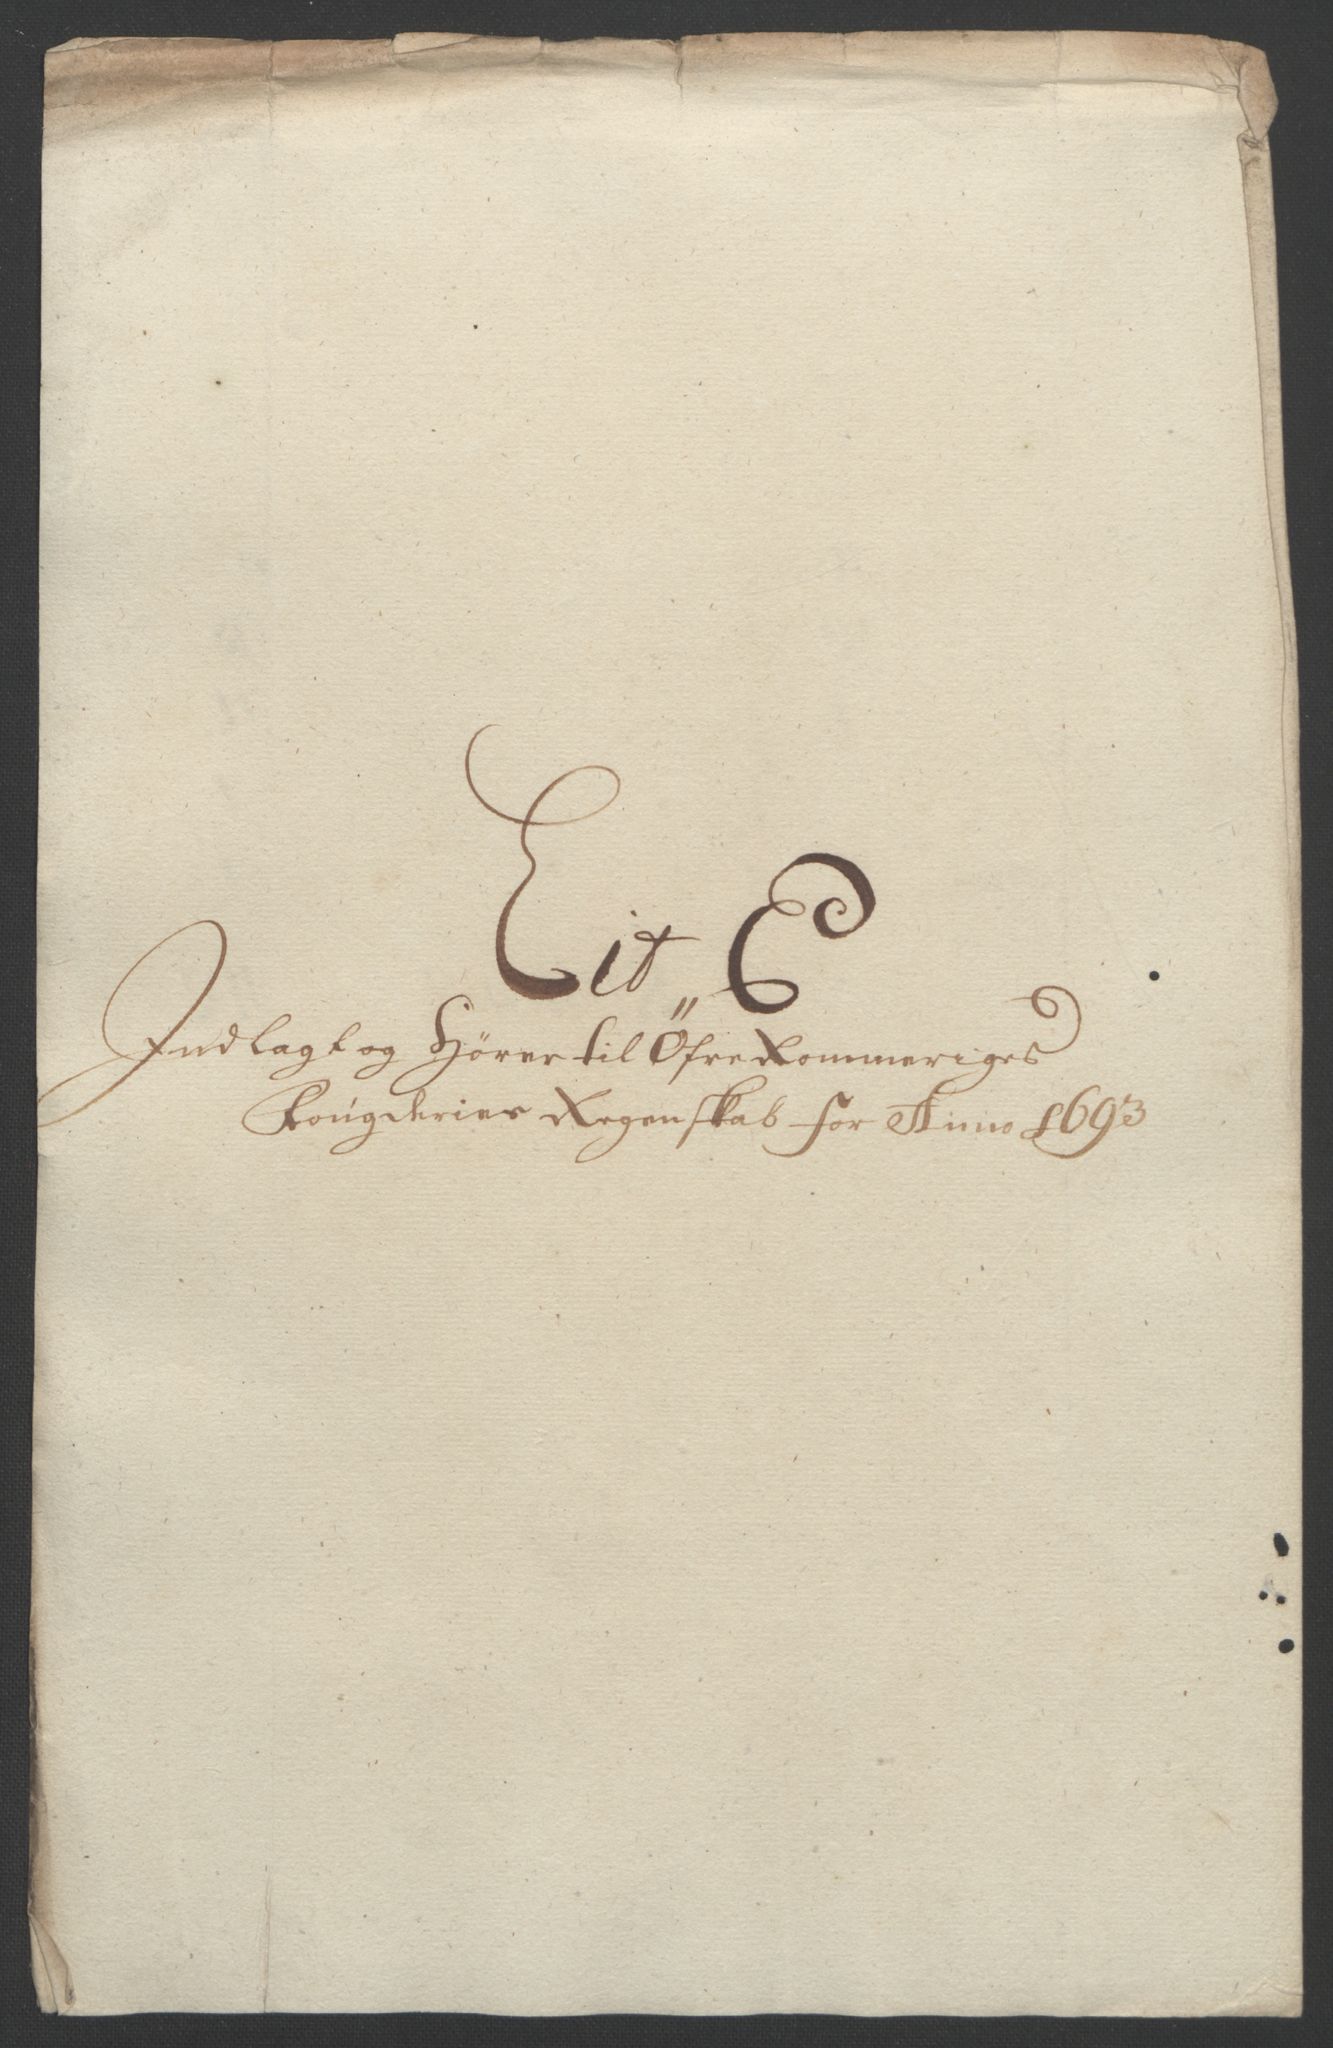 Lit E
Indlagt og Hörer til Öfre Rommeriges
Fougderies Regenskab for Anno 1693